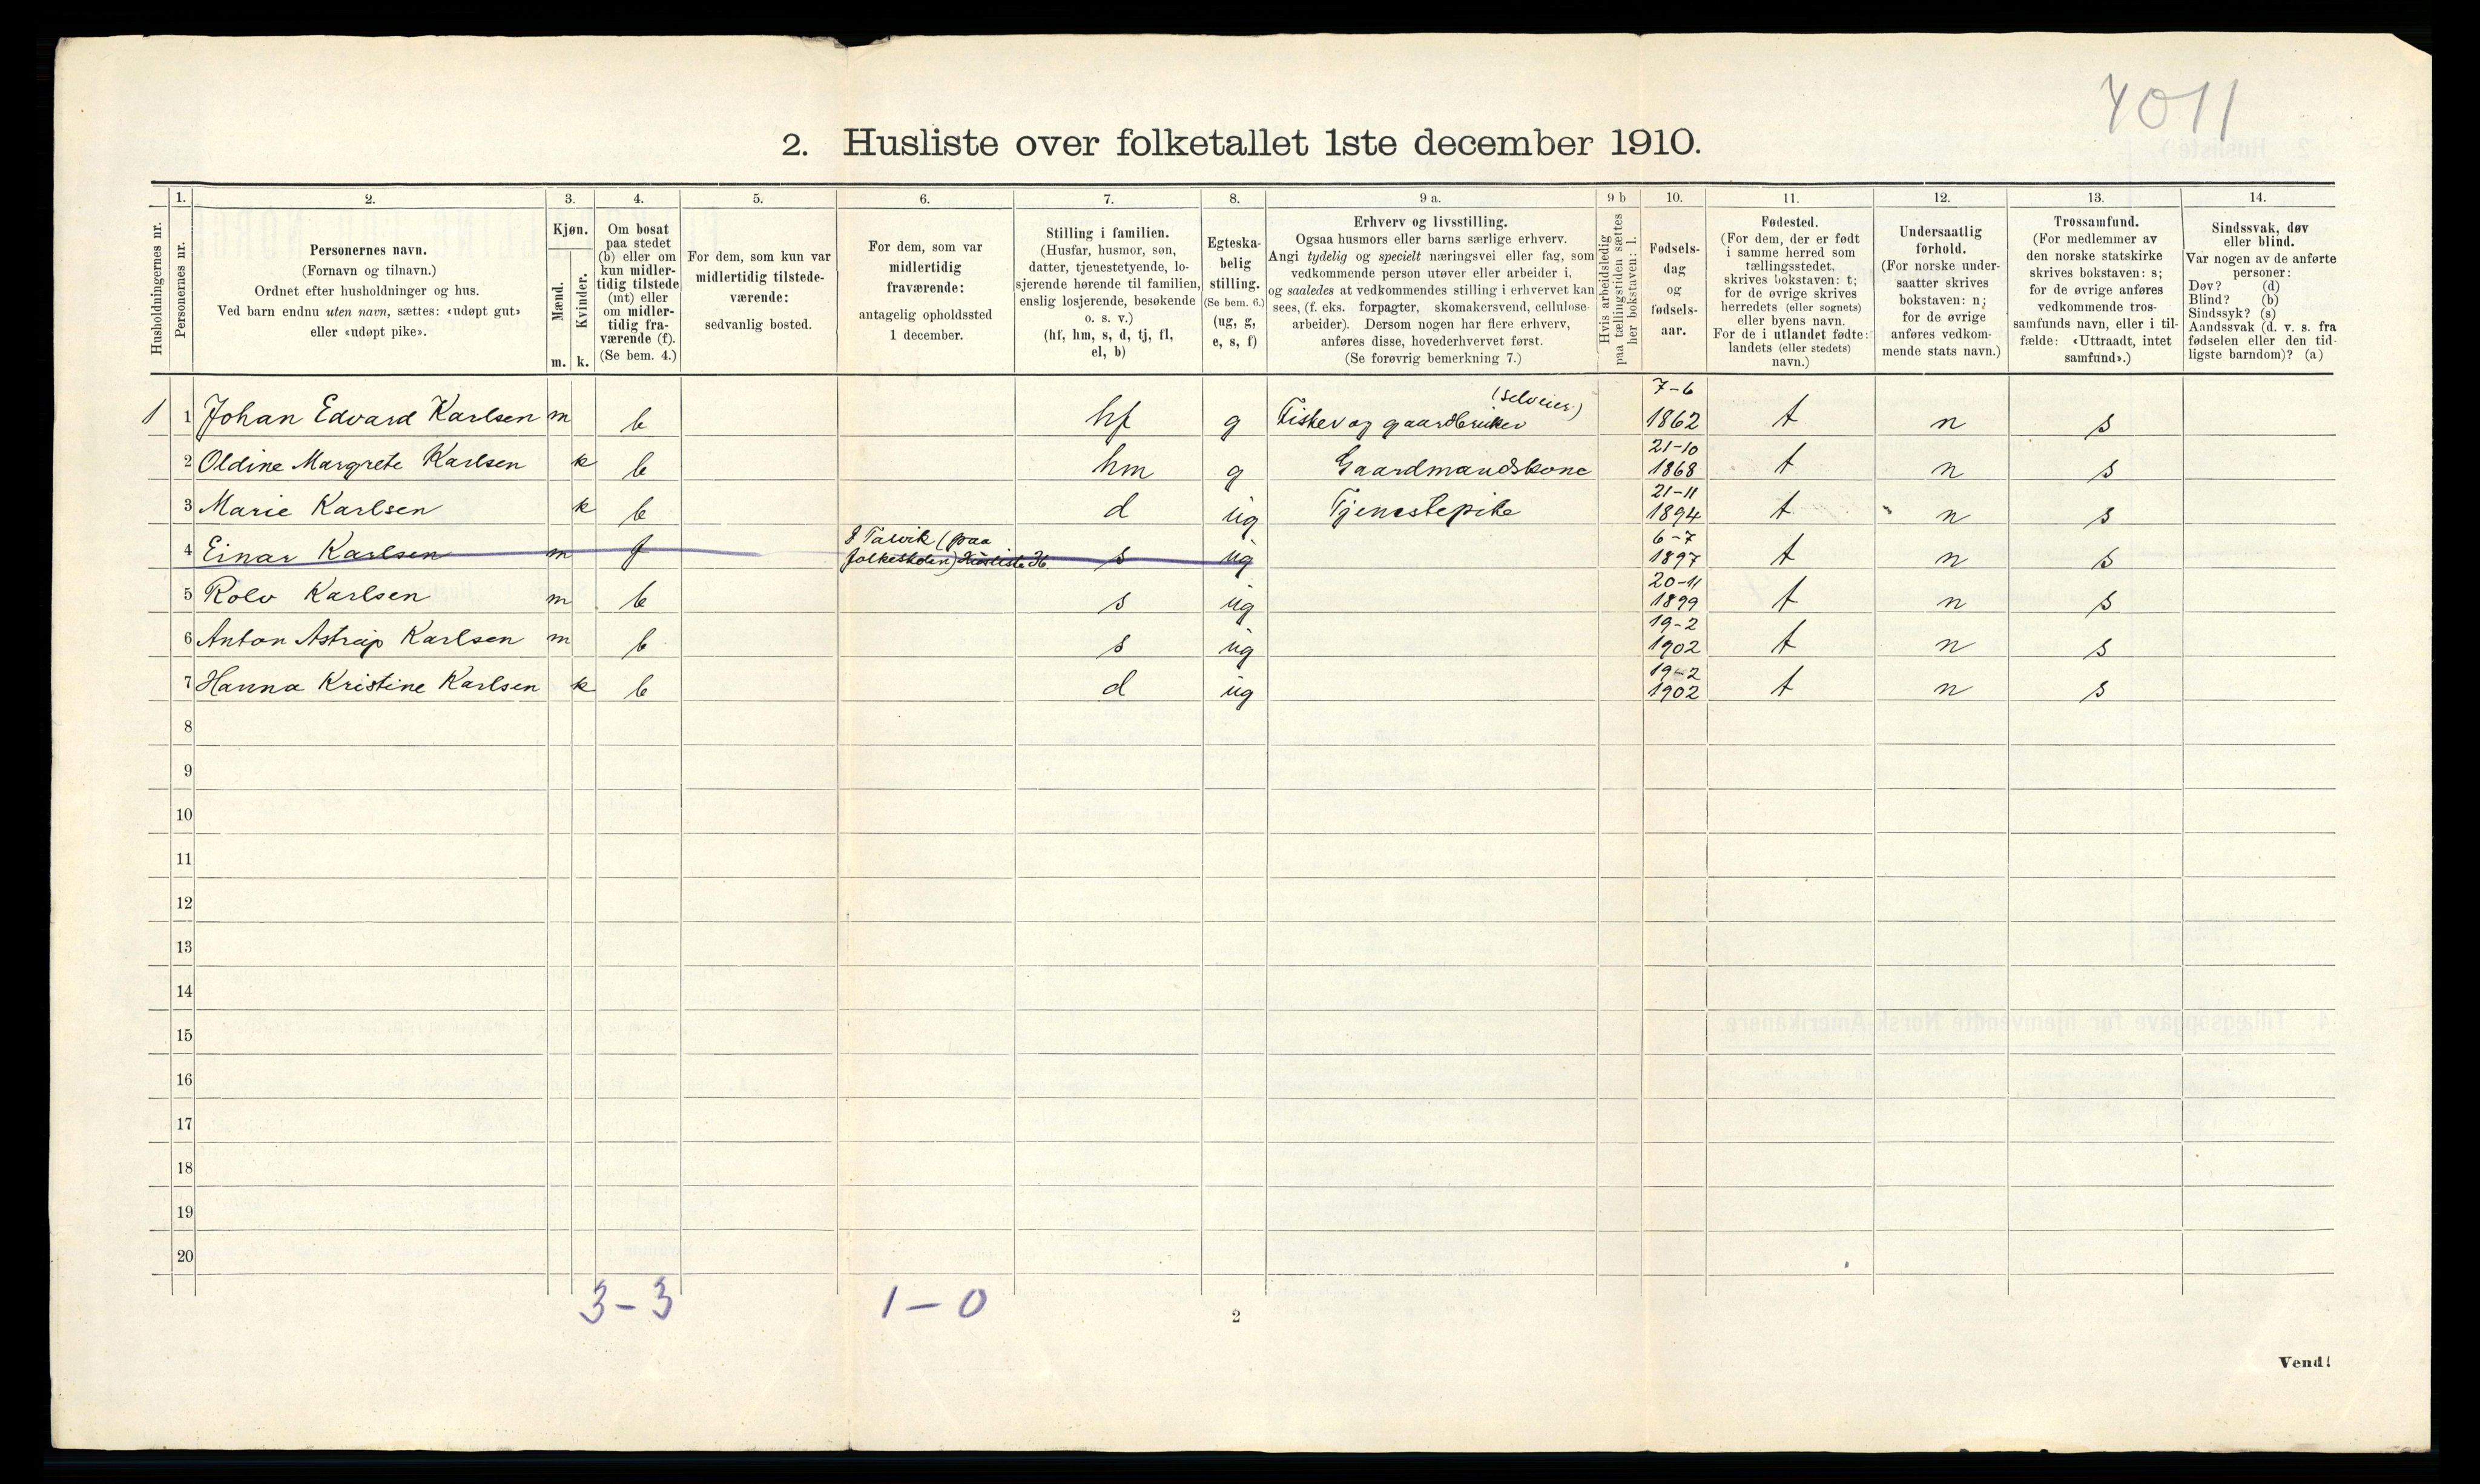 4011
2. Husliste over folketallet 1ste december 1910.
Husholdningernes nr.
1.
Personernes nr.
2.
Personernes navn.
(Fornavn og tilnavn.)
Ordnet efter husholdninger og hus.
Ved barn endnu uten navn, sættes: «udøpt gut»
eller «udøpt pike».
3.
Kjøn.
Mænd.
Kvinder.
m. k.
4.
Om bosat
paa stedet
(b) eller om
kun midler-
tidig tilstede
(mt) eller
om midler-
tidig fra-
værende (f).
(Se bem. 4.)
5.
For dem, som kun var
midlertidig tilstede-
værende:
sedvanlig bosted.
6.
For dem, som var
midlertidig
fraværende:
antagelig opholdssted
1 december.
7.
Stilling i familien.
(Husfar, husmor, søn,
datter, tjenestetyende, lo-
sjerende hørende til familien,
enslig losjerende, besøkende
o. s. v.)
(hf, hm, s, d, tj, fl,
el, b)
8.
Egteska-
belig
stilling.
(Se bem. 6.)
(ug, g,
e, s, f)
9 a.
Erhverv og livsstilling.
Ogsaa husmors eller barns særlige erhverv.
Angi tydelig og specielt næringsvei eller fag, som
vedkommende person utøver eller arbeider i,
og saaledes at vedkommendes stilling i erhvervet kan
sees, (f. eks. forpagter, skomakersvend, cellulose-
arbeider). Dersom nogen har flere erhverv,
anføres disse, hovederhvervet først.
(Se forøvrig bemerkning 7.)
9 b
Hvis arbeidsledig
paa tællingstiden sættes
her bokstaven: l.
10.
Fødsels-
dag
og
fødsels-
aar.
11.
Fødested.
(For dem, der er født
i samme herred som
tællingsstedet,
skrives bokstaven: t;
for de øvrige skrives
herredets (eller sognets)
eller byens navn.
For de i utlandet fødte:
landets (eller stedets)
navn.)
12.
Undersaatlig
forhold.
(For norske under-
saatter skrives
bokstaven: n;
for de øvrige
anføres vedkom-
mende stats navn.)
13.
Trossamfund.
(For medlemmer av
den norske statskirke
skrives bokstaven: s;
for de øvrige anføres
vedkommende tros-
samfunds navn, eller i til-
fælde: «Uttraadt, intet
samfund».)
14.
Sindssvak, døv
eller blind.
Var nogen av de anførte
personer:
Døv? (d)
Blind? (b)
Sindssyk? (s)
Aandssvak (d. v. s. fra
fødselen eller den tid-
ligste barndom)? (a)
1 1 Johan Edvard Karlsen m b hf g Fisker og gaardbruker (selveier) 7-6 1862 t n s
2 Oldine Margrete Karlsen k b hm g Gaardmandskone 21-10 1868 t n s
3 Marie Karlsen k b d ug Tjenestepike 21-11 1894 t n s
4 Einar Karlsen m f I Talvik (paa folkeskolen) Husliste 36 s ug 6-7 1897 t n s
5 Rolv Karlsen m b s ug 20-11 1899 t n s
6 Anton Astrup Karlsen m b s ug 19-2 1902 t n s
7 Hanna Kristine Karlsen k b d ug 19-2 1902 t n s
8
9
10
11
12
13
14
15
16
17
18
19
20
3-3 1-0
2
Vend!